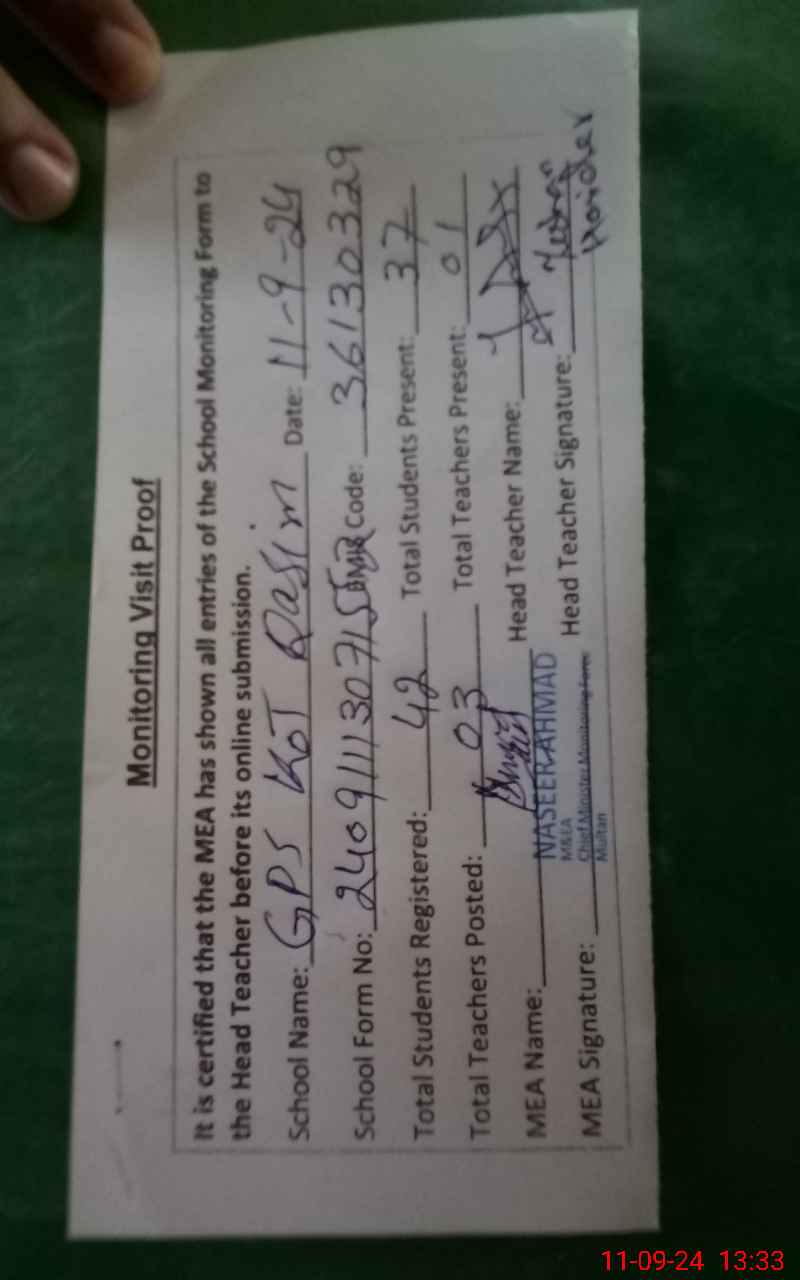 Monitoring Visit Proof
It is certified that the MEA has shown all entries of the School Monitoring Form to
the Head Teacher before its online submission.
School Name: GPS KOT Rasim Date: 11-9-24
School Form No: EMIS Code: 36130329
Total Students Registered: 42 Total Students Present: 37
Total Teachers Posted: 03 Total Teachers Present: 01
MEA Name: NASEER AHMAD Head Teacher Name:
M&EA
Chief Minister Monitoring Force
Multan
MEA Signature: Head Teacher Signature: Haider
11-09-24 13:33